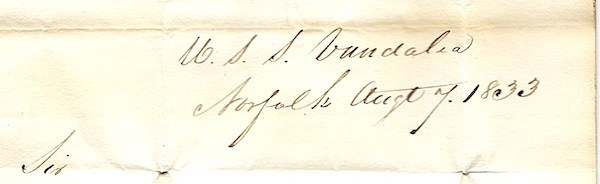 U. S. S. Vandalia
Norfolk Augt 7. 1833
Sir